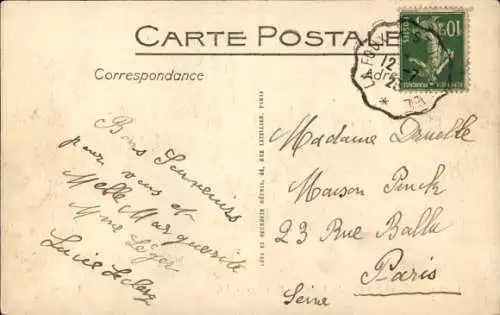 CARTE POSTALE
Correspondance
Adresse
LA FOUX
12
25
10
Bons Souvenirs
pour vous et
Melle Marguerite
Mme Léger
Lucie Leclerg
Madame Druelle
Maison Penck
23 Rue Ballu
Paris
Seine